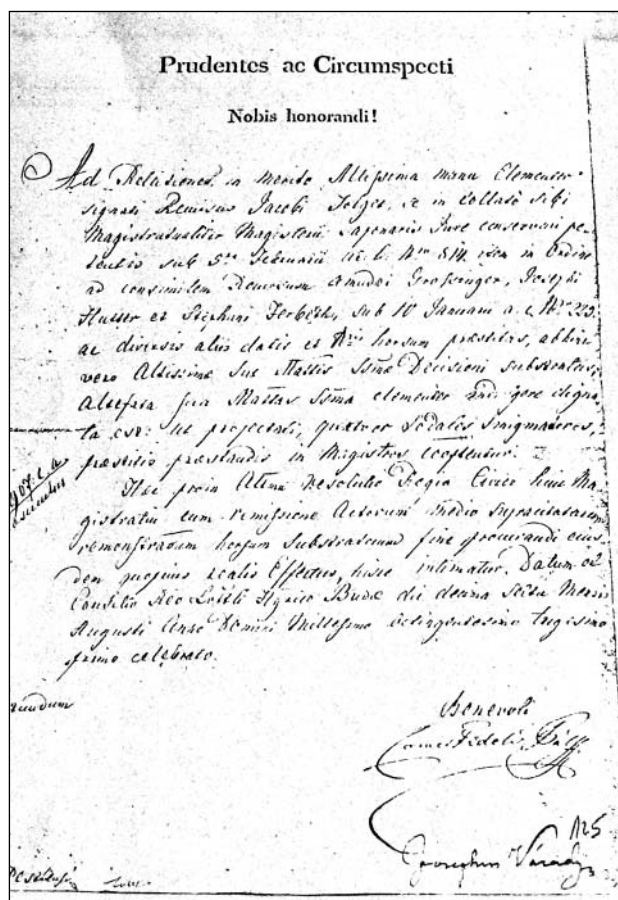 Prudentes ac Circumspecti
Nobis honorandi!
Ad Relationes in merito Altissima manu Clementer
signati Recursus Jacobi Folger, in collato sibi
Magistratualiter Magisterii Saponaris Jure conservari pe-
tentis sub 5ta Februarii Nro 814 in Ordine
ad consimilem Recursum Amadei Grossinger, Josephi
Hutter et Stephani sub 10 Januarii a. c. Nro 223.
ac diversis aliis datis et Nris horsum præstitas, abhinc
vero Altissimæ Suæ Mattis Ssmæ Decisioni substratas,
Altefata Sua Mattas Ssma clementer digna-
ta est: ut projectati, quatuor Sodales Smigmatores,
præstitis præstandis in Magistros cooptentur.
Hæc proin Altma Resolutio Regia Civico huic Ma-
gistratui cum remissione Actorum medio supracitatarum
remonstrationum horsum substratorum fine procurandi ejus-
dem quoque realis Effectus, hisce intimatur. Datum ex
Consilio Rio Lottli Hgrico Budæ die decima Mensis
Augusti Anno Domini Millesimo octingentesimo trigesimo
primo celebrato.
Benevoli
Comes Fidelis
125
Josephus Várady